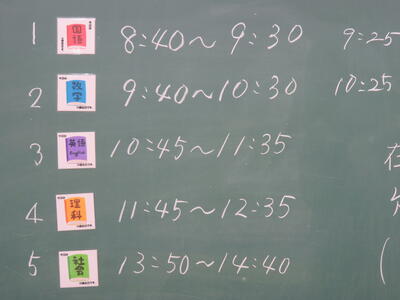 1 国語 8:40～9:30 9:25
2 数学 9:40～10:30 10:25
3 英語 English 10:45～11:35
4 理科 11:45～12:35
5 社会 13:50～14:40
(